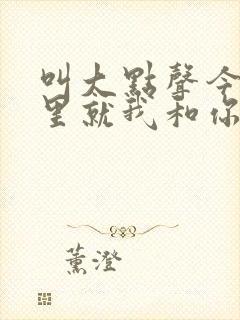 叫大點聲今
里就我和你
薰澄